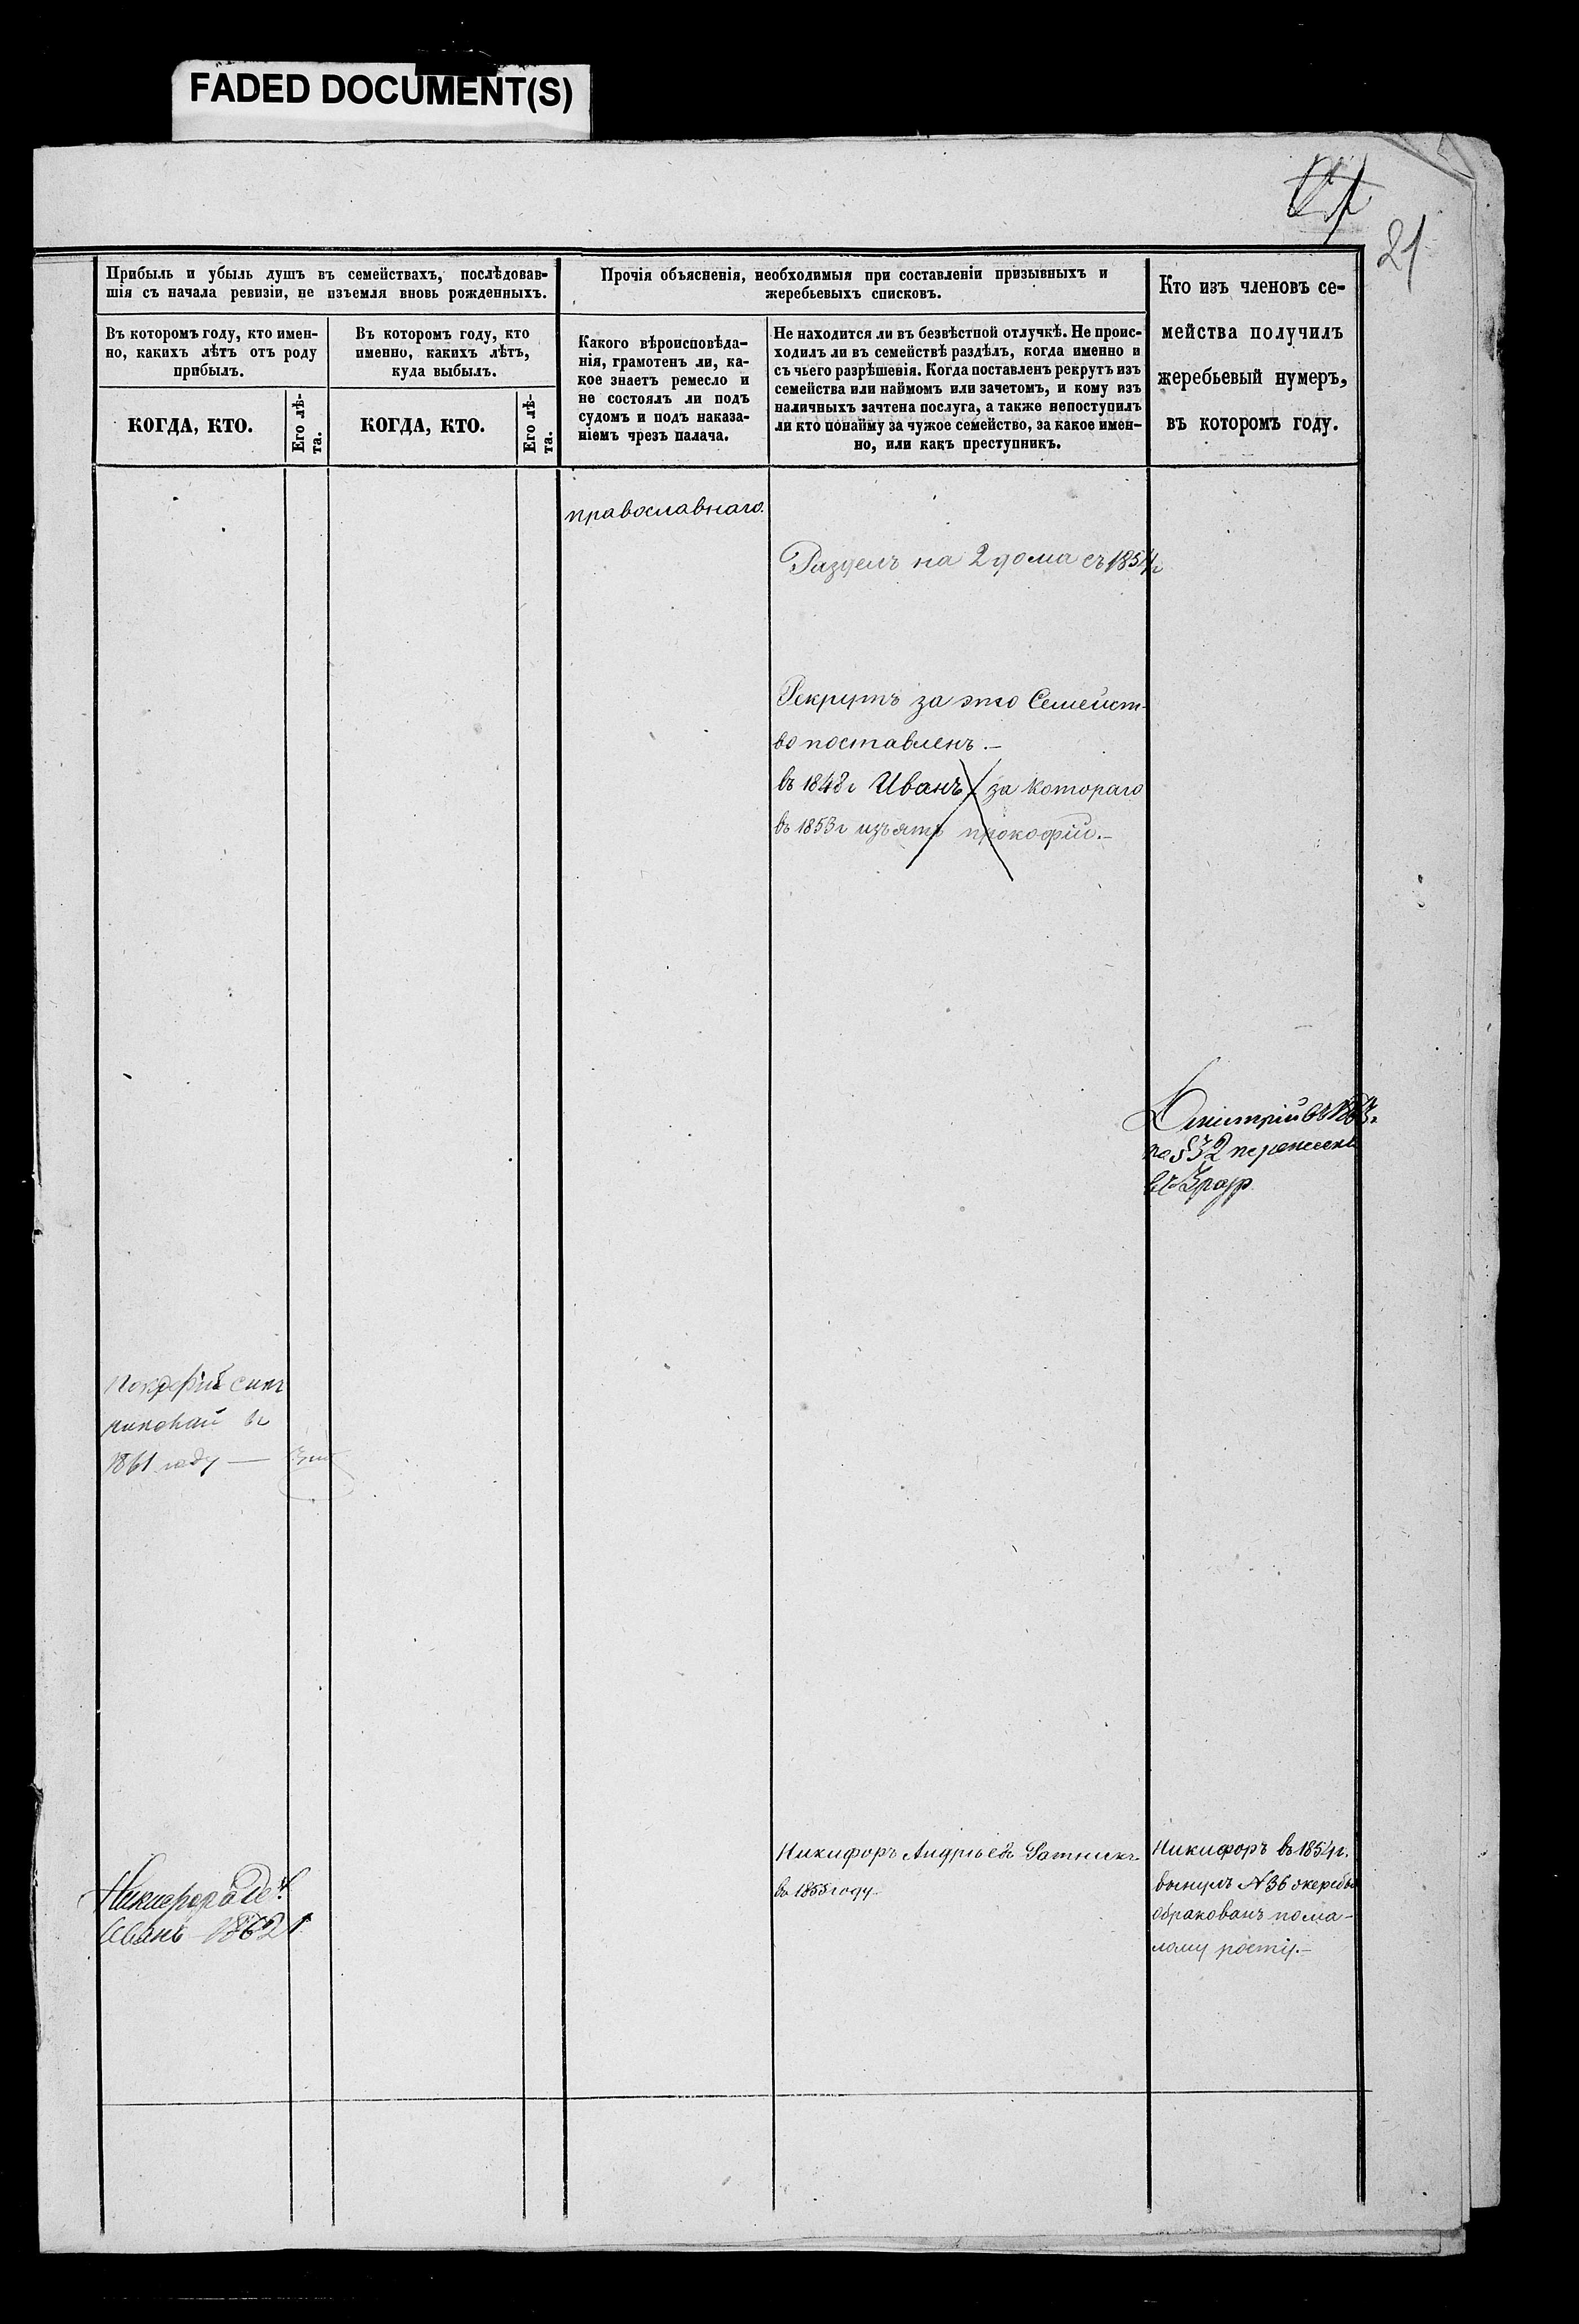 FADED DOCUMENT(S)
21
Прибыль и убыль душъ въ семействахъ, послѣдовав-
шія съ начала ревизіи, не изъемля вновь рожденныхъ.
Въ которомъ году, кто имен-
но, какихъ лѣтъ отъ роду
прибылъ.
КОГДА, КТО.
Его лѣ-
та.
Въ которомъ году, кто
именно, какихъ лѣтъ,
куда выбылъ.
КОГДА, КТО.
Его лѣ-
та.
Прочія объясненія, необходимыя при составленіи призывныхъ и
жеребьевыхъ списковъ.
Какого вѣроисповѣда-
нія, грамотенъ ли, ка-
кое знаетъ ремесло и
не состоялъ ли подъ
судомъ и подъ наказа-
ніемъ чрезъ палача.
Не находится ли въ безвѣстной отлучкѣ. Не проис-
ходилъ ли въ семействѣ раздѣлъ, когда именно и
съ чьего разрѣшенія. Когда поставленъ рекрутъ изъ
семейства или наймомъ или зачетомъ, и кому изъ
наличныхъ зачтена послуга, а также непоступилъ
ли кто понайму за чужое семейство, за какое имен-
но, или какъ преступникъ.
Кто изъ членовъ се-
мейства получилъ
жеребьевый нумеръ,
въ которомъ году.
православнаго.
Раздель на 2 дома съ 1854 г
Рекрутъ за это Семейст-
во поставленъ.—
въ 1848 г Иванъ за котораго
въ 1853 г изъятъ прокофій.—
Дмитрій въ
по §32 перенесенъ
въ 3 разр
сынъ
въ
1861 году —
Никифора
Иванъ 1862
Никифоръ Андріевъ Ратникъ
въ 1855 году
Никифоръ въ 1854 г.
вынулъ № 36 жеребья
обракованъ пома-
лому росту.—